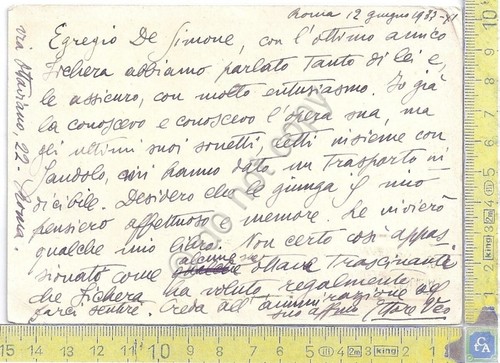 Roma 12 giugno 1933-XI
Egregio De Simone, con l'ottimo amico
Fichera abbiamo parlato tanto di lei e,
le assicuro, con molto entusiasmo. Io già
la conoscevo e conoscevo l'opera sua, ma
gli ultimi suoi sonetti, letti insieme con
Sandolo, mi hanno dato un trasporto in
dicibile. Desidero che le giunga il mio
pensiero affettuoso, memore. Le invierò
qualche mio libro. Non certo così appas
sionato come alcune sue ottave trascinante
che Fichera ha voluto regalmente
farci sentire. Creda all'ammirazione del
suo affmo Ettore Veo
via Ottaviano, 22 - Roma.
do not copy